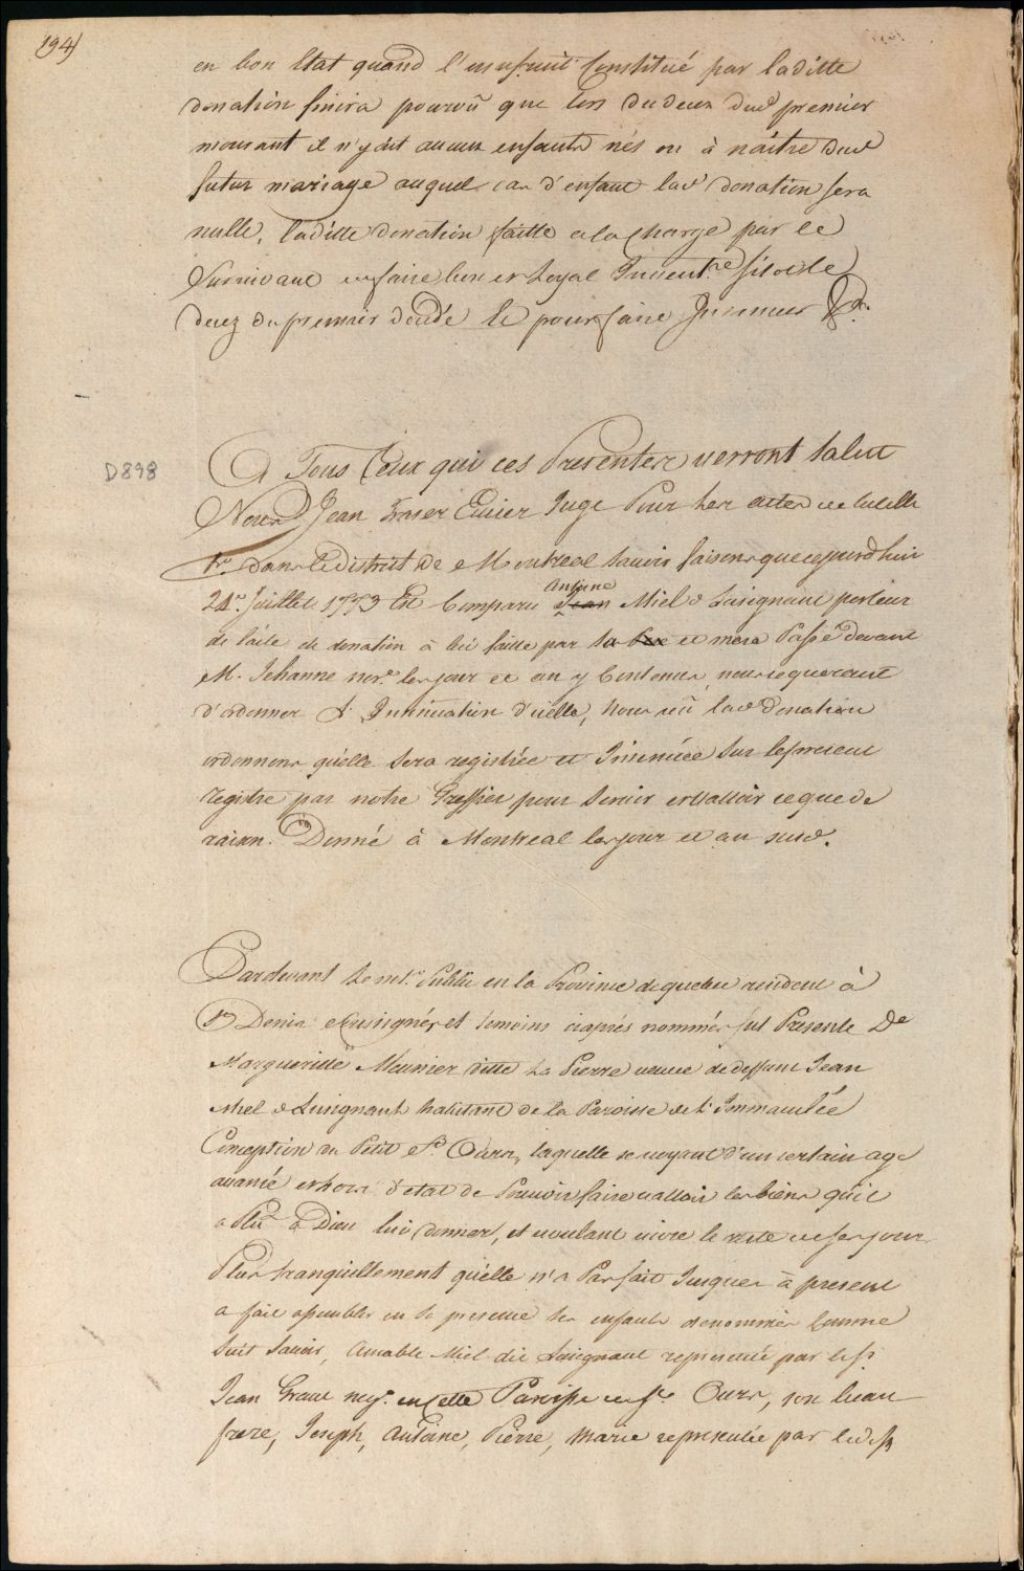 194)
en bon Etat quand l'usufruit Constitué par laditte
donation finira pourvû que lors du deces dud premier
mourant il n'y ait aucun enfants nés ou à naître dud
futur mariage auquel cas d'enfant lad donation sera
nulle, laditte donation faitte a la charge par le
Survivant de faire bon et Loyal Invent.re sitot le
decez du premier décédé
D898
A Tous Ceux qui ces Presentes verront Salut
Nous Jean Fraser Ecuier Juge Pour les
dans le district de Montreal Savoir faisons que cejourd'hui
21.e Juillet 1773 Est Comparu Antoine Jean Miel d Lusignant porteur
de l'acte de donation à lui faitte par sa Mere et mere Passé devant
M. Jehanne not.re les jour et an y Contenus, nous requerant
d'ordonner L'Insinuation d'icelle, Nous vû lad Donation
ordonnons qu'elle sera registrée et Insinuée Sur le present
registre par notre Greffier pour servir et valloir ce que de
raison. Donné à Montreal les jour et an susd.
Pardevant Le not.re Public en la Province de quebec resident à
St Denis Soussignés et temoins ciaprés nommés fut Presente De
Marguerite Meunier ditte La Pierre veuve de deffunt Jean
Miel d Lusignant habitant de la Paroisse de L'Immaculée
Conception du Petit St. Ours, laquelle se voyant d'un certain age
avancé et hors d'etat de Pouvoir faire valloir les biens qu'il
a Plu à Dieu lui donner, et voulant vivre le reste de ses jours
Plus tranquillement qu'elle n'a Pas fait Jusques à present
a fait assembler en sa presence ses enfants denommés comme
Suit Savoir, Amable Miel dit Lusignant representé par le Sr.
Jean Grave neg.t en cette Paroisse de St. Ours, son beau
frere, Joseph, Antoine, Pierre, Marie representée par led Sr